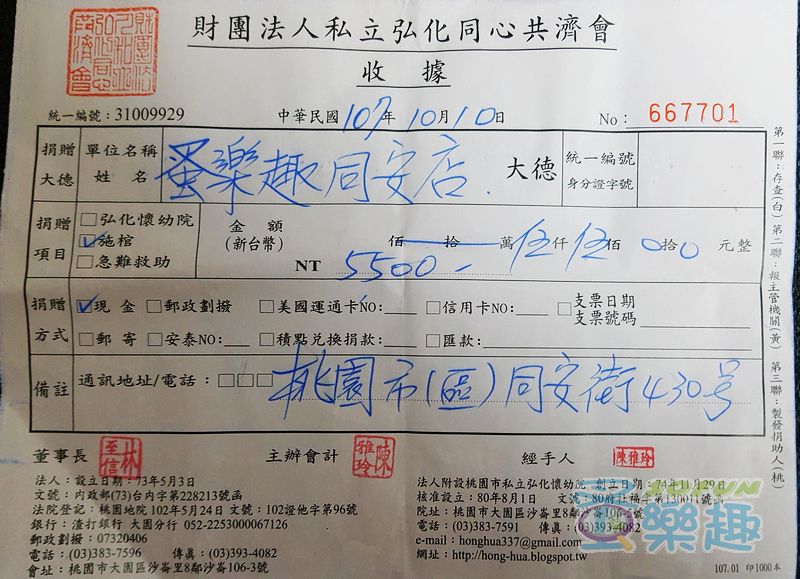 財團法人私立弘化同心共濟會
收據
統一編號：31009929 中華民國107年10月10日 No：667701
捐贈大德 單位名稱姓名 蛋樂趣同安店 大德 統一編號 身分證字號
捐贈項目 □弘化懷幼院
☑施棺
□急難救助
金額(新台幣) NT 5500.- 佰拾萬伍仟伍佰0拾0元整
捐贈方式 ☑現金 □郵政劃撥 □美國運通卡NO: □信用卡NO: □支票日期 支票號碼
□郵寄 □安泰NO: □積點兌換捐款: □匯款:
備註 通訊地址/電話：□□□ 桃園市(區)同安街430号
董事長 林至信 主辦會計 陳雅玲 經手人 陳雅玲
法人：設立日期：73年5月3日
文號：內政部(73)台內字第228213號函
法院登記：桃園地院102年5月24日 文號：102證他字第96號
銀行：渣打銀行 大園分行 052-2253000067126
郵政劃撥：07320406
電話：(03)383-7596 傳真：(03)393-4082
會址：桃園市大園區沙崙里8鄰沙崙106-3號
法人附設桃園市私立弘化懷幼院 創立日期：74年11月29日
核准設立：80年8月1日 文號：80府社福字第130011號函
院址：桃園市大園區沙崙里8鄰沙崙106-4號
電話：(03)383-7591 傳真：(03)393-4082
e-mail：honghua337@gmail.com
網址：http://hong-hua.blogspot.tw
107.01 印1000本
第一聯：存查(白) 第二聯：報主管機關(黃) 第三聯：製發捐助人(桃)
樂趣